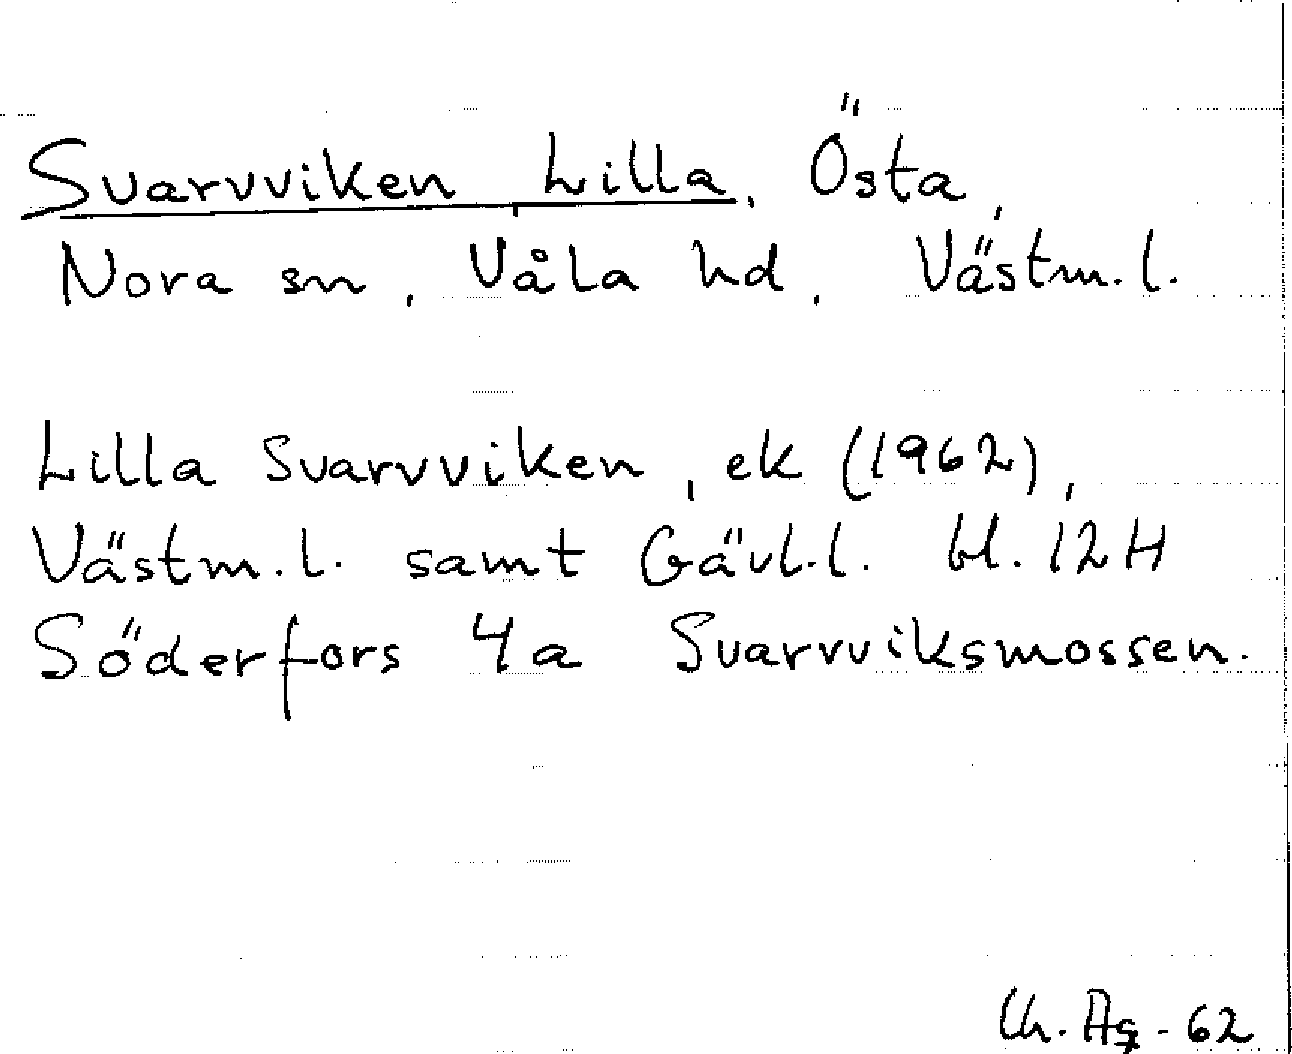 Svarvviken, Lilla, Östa,
Nora sn, Våla hd, Västm.l.
Lilla Svarvviken, ek (1962),
Västm.l. samt Gävl.l. bl. 12H
Söderfors 4a Svarvviksmossen.
Ch. Ag - 62